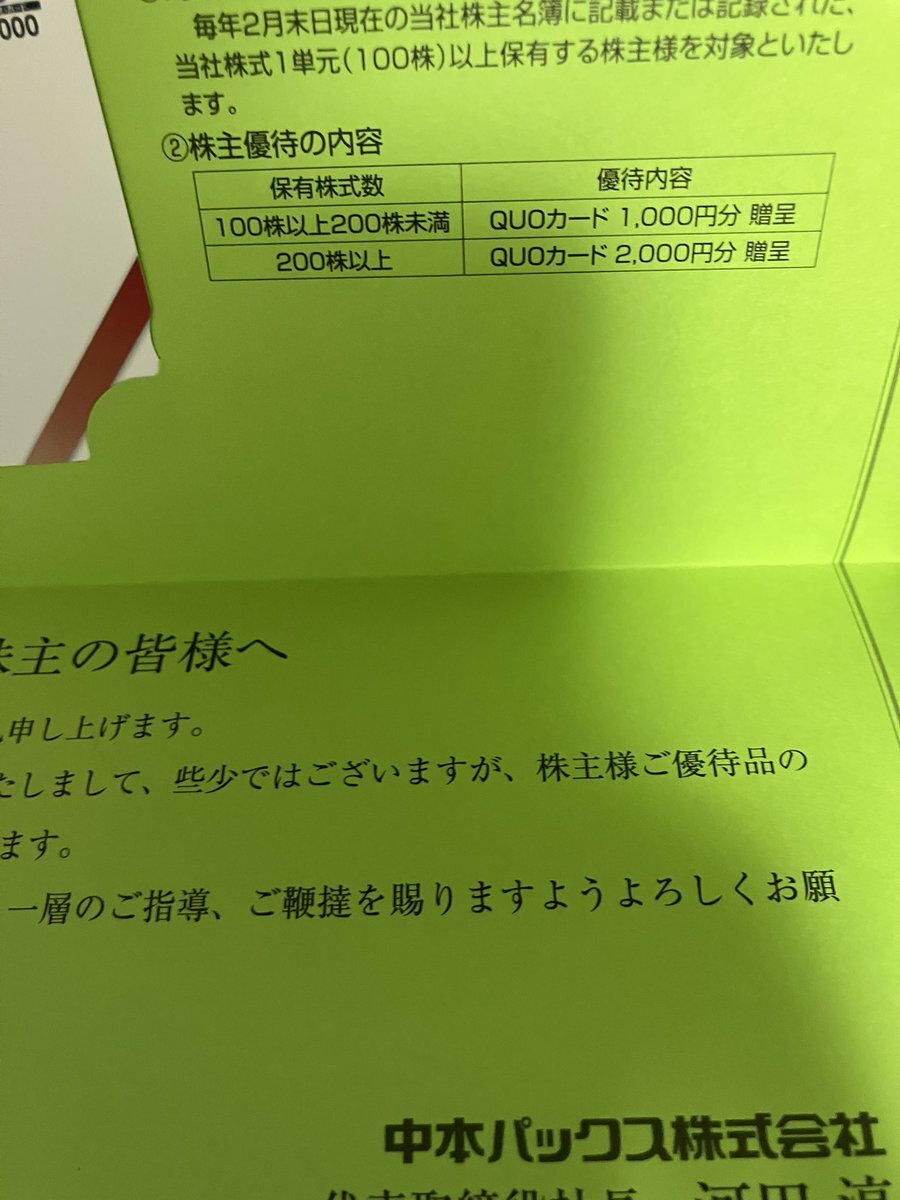 000
毎年2月末日現在の当社株主名簿に記載または記録された、
当社株式1単元(100株)以上保有する株主様を対象といたし
ます。
②株主優待の内容
保有株式数 優待内容
100株以上200株未満 QUOカード 1,000円分 贈呈
200株以上 QUOカード 2,000円分 贈呈
株主の皆様へ
申し上げます。
たしまして、些少ではございますが、株主様ご優待品の
ます。
一層のご指導、ご鞭撻を賜りますようよろしくお願
中本パックス株式会社
代表取締役社長 河田 淳